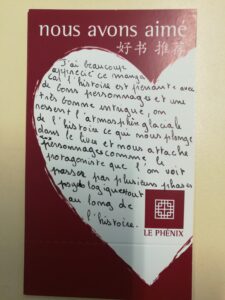 nous avons aimé
好书 推荐
J'ai beaucoup
apprécié ce manga
car l'histoire est prenante avec
de bons personnages et une
très bonne intrigue, on
ressent l'atmosphère glaciale
de l'histoire ce qui nous plonge
dans le livre et nous attache
aux personnages comme le
protagoniste que l'on voit
passer par plusieurs phases
psychologiques tout
au long de
l'histoire.
LE PHÉNIX